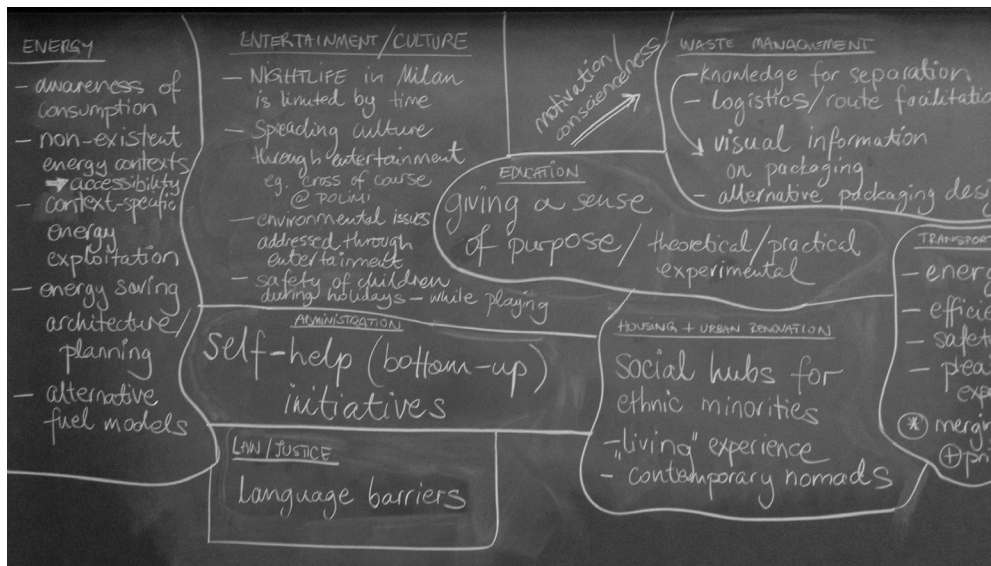 ENERGY
- awareness of
consumption
- non-existent
energy contexts
→ accessibility
- context-specific
energy
exploitation
- energy saving
architecture/
planning
- alternative
fuel models
ENTERTAINMENT/CULTURE
- NIGHTLIFE in Milan
is limited by time
- Spreading culture
through entertainment
eg. cross of course
@ POLIMI
- environmental issues
addressed through
entertainment
- safety of children
during holidays - while playing
motivation/
conscienceness
WASTE MANAGEMENT
- knowledge for separation
- logistics/route facilitatio
visual information
on packaging
- alternative packaging desig
EDUCATION
giving a sense
of purpose/theoretical/practical
experimental
ADMINISTRATION
Self-help (bottom-up)
initiatives
LAW/JUSTICE
Language barriers
HOUSING + URBAN RENOVATION
Social hubs for
ethnic minorities
- "living" experience
- contemporary nomads
TRANSPORT
- energ
- efficie
- safet
- plea
expe
* mergin
+ pri